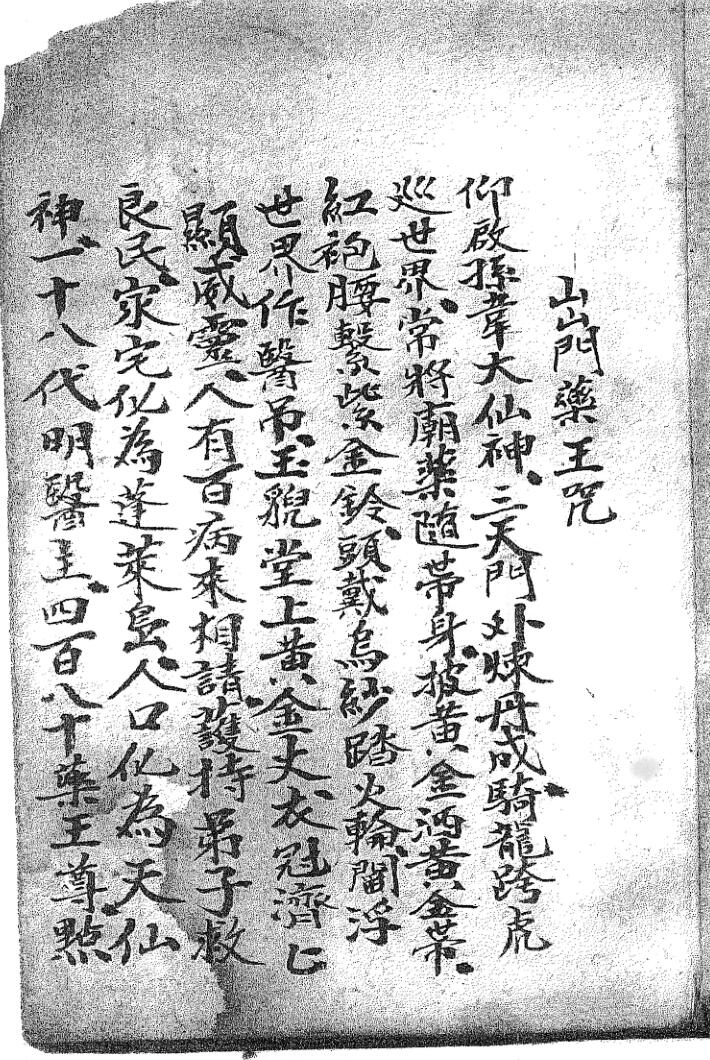 山山門藥王咒
仰啟孫韋大仙神、三天門外煉丹成、騎龍跨虎
巡世界、常將廟藥隨帶身、披黃金洒黃金帶、
紅袍腰繫紫金鈴、頭戴烏紗踏火輪、閻浮
世界作醫吊、玉猊堂上黃金丈衣冠濟匕
顯威靈、人有百病來相請、護持弟子救
良民、家宅化為蓬萊島、人口化為天仙
神、一十八代明醫主、四百八十藥王尊、點